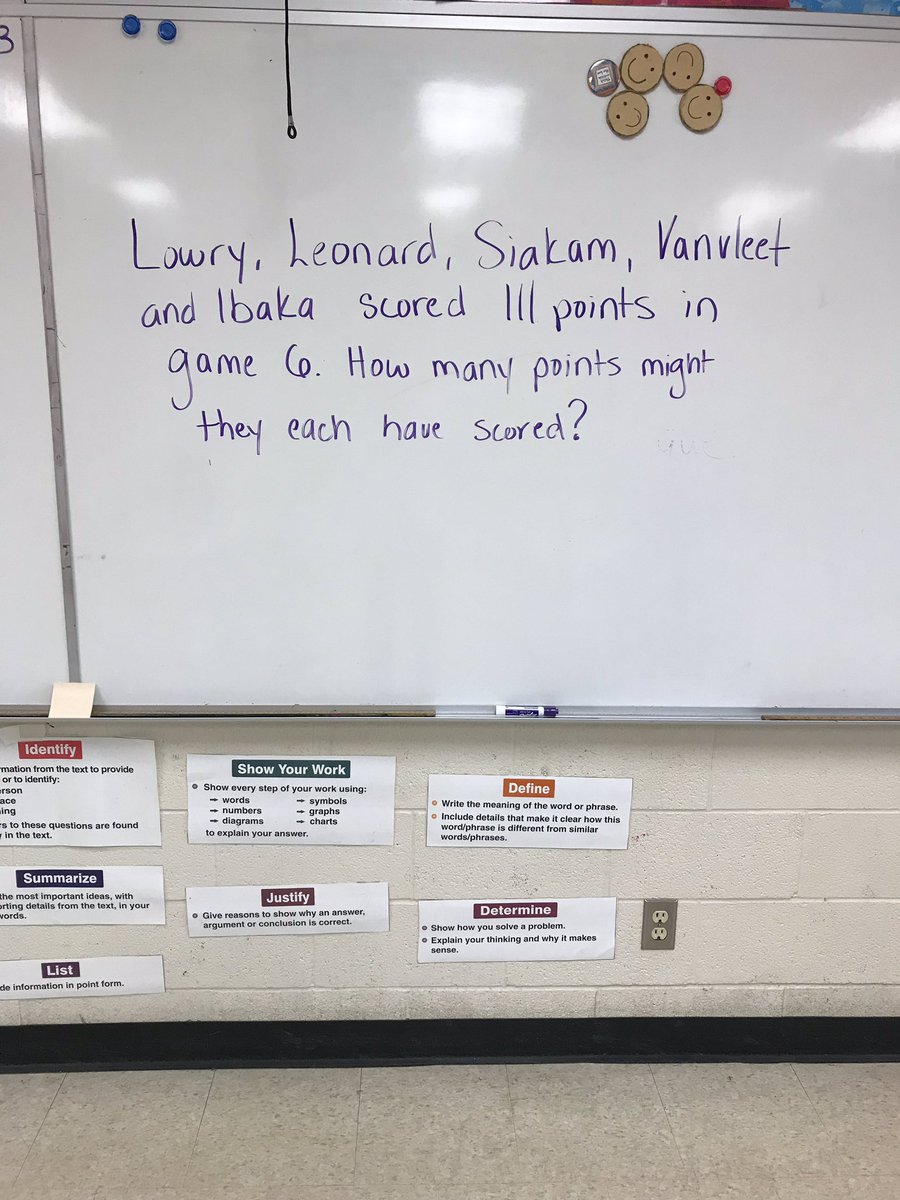 3
Lowry, Leonard, Siakam, Vanvleet
and Ibaka scored 111 points in
game 6. How many points might
they each have scored?
Identify
rmation from the text to provide
or to identify:
erson
lace
ing
rs to these questions are found
y in the text.
Show Your Work
Show every step of your work using:
→ words → symbols
→ numbers → graphs
→ diagrams → charts
to explain your answer.
Define
Write the meaning of the word or phrase.
Include details that make it clear how this
word/phrase is different from similar
words/phrases.
Summarize
the most important ideas, with
orting details from the text, in your
words.
Justify
Give reasons to show why an answer,
argument or conclusion is correct.
Determine
Show how you solve a problem.
Explain your thinking and why it makes
sense.
List
de information in point form.